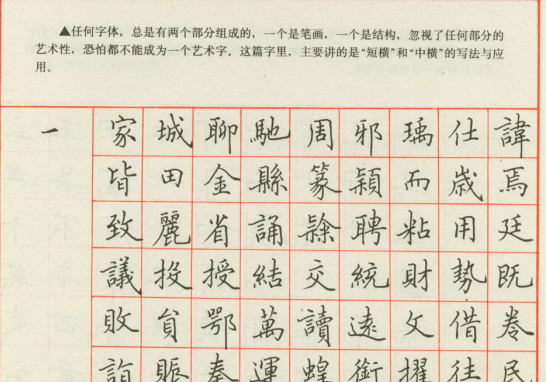 ▲任何字体，总是有两个部分组成的，一个是笔画，一个是结构，忽视了任何部分的
艺术性，恐怕都不能成为一个艺术字。这篇字里，主要讲的是“短横”和“中横”的写法与应
用。
一 家 城 聊 馳 周 邪 瑀 仕 諱
皆 田 金 縣 篆 穎 而 歲 焉
致 麗 省 誦 隸 聘 粘 用 廷
議 投 授 結 交 統 財 勢 既
敗 貟 鄂 萬 讀 遠 文 借 卷
詣 賑 奏 運 蝗 銜 擢 往 民